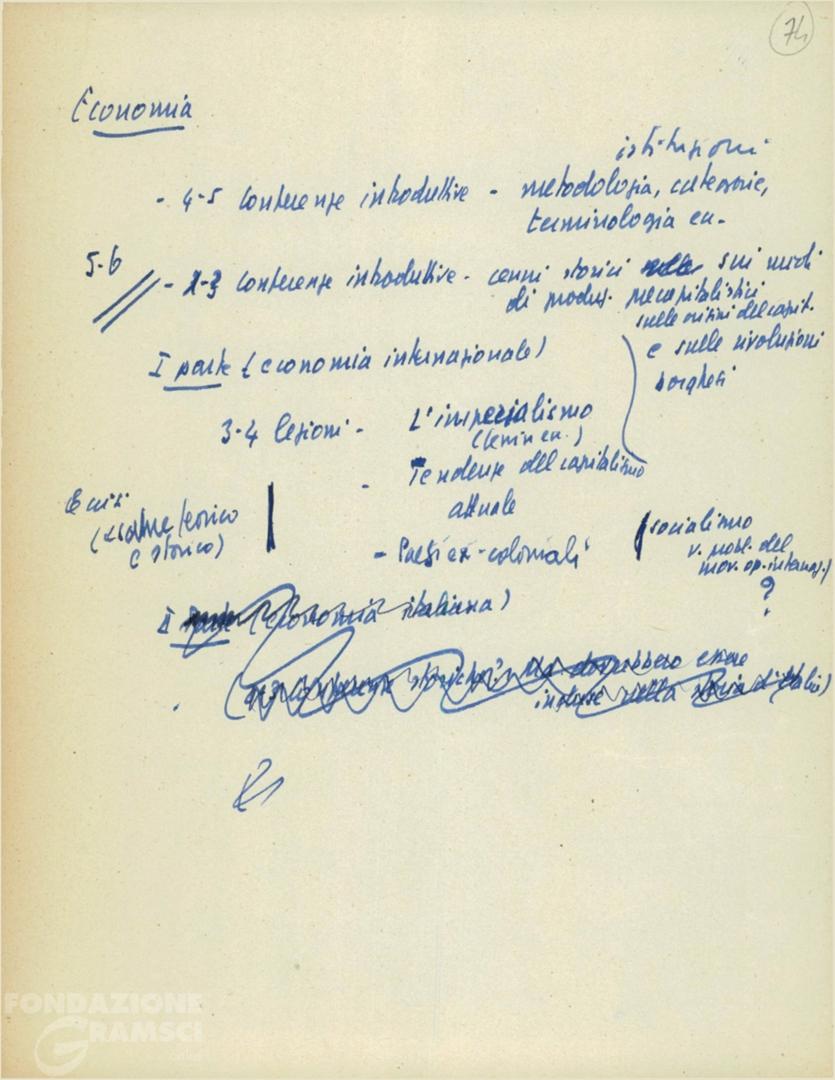 74
Economia
istituzioni
- 4-5 conferenze introduttive - metodologia, categorie,
terminologia ec.
5-6
- 2-3 conferenze introduttive - cenni storici sui modi
di produz. precapitalistici
sulle origini del capit.
e sulle rivoluzioni
borghesi
I parte (economia internazionale)
3-4 lezioni - L'imperialismo
(Lenin ec.)
- Tendenze del capitalismo
attuale
Crisi
(teorico
e storico)
- Paesi ex-coloniali
(socialismo
v. probl. del
mov. op. internaz.)
?
I parte (economia italiana)
(2-3 conferenze storiche: ma dovrebbero essere
incluse nella storia d'Italia)
FONDAZIONE
GRAMSCI